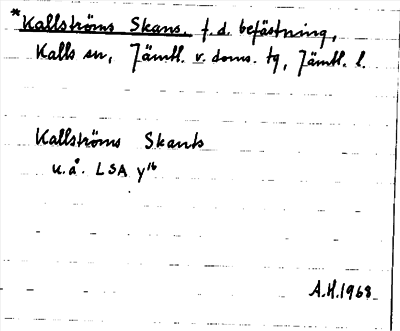 *Kallströms Skans, f.d. befästning,
Kalls sn, Jämtl. v. doms. tg, Jämtl. l.
Kallströms Skants
u.å. LSA y16
A.H.1968